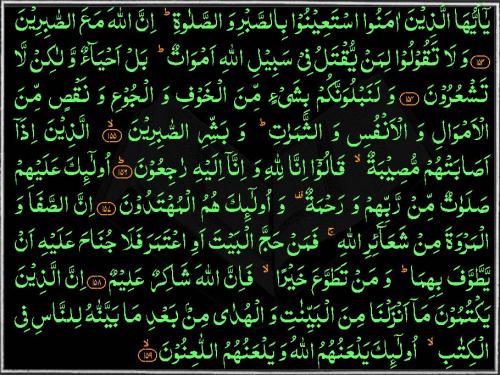 يٰۤاَيُّهَا الَّذِيْنَ اٰمَنُوا اسْتَعِيْنُوْا بِالصَّبْرِ وَ الصَّلٰوةِ ؕ اِنَّ اللّٰهَ مَعَ الصّٰبِرِيْنَ
﴿۱۵۳﴾ وَ لَا تَقُوْلُوْا لِمَنْ يُّقْتَلُ فِيْ سَبِيْلِ اللّٰهِ اَمْوَاتٌ ؕ بَلْ اَحْيَآءٌ وَّ لٰكِنْ لَّا
تَشْعُرُوْنَ ﴿۱۵۴﴾ وَ لَنَبْلُوَنَّكُمْ بِشَيْءٍ مِّنَ الْخَوْفِ وَ الْجُوْعِ وَ نَقْصٍ مِّنَ
الْاَمْوَالِ وَ الْاَنْفُسِ وَ الثَّمَرٰتِ ؕ وَ بَشِّرِ الصّٰبِرِيْنَ ۙ﴿۱۵۵﴾ الَّذِيْنَ اِذَاۤ
اَصَابَتْهُمْ مُّصِيْبَةٌ ۙ قَالُوْۤا اِنَّا لِلّٰهِ وَ اِنَّاۤ اِلَيْهِ رٰجِعُوْنَ ؕ﴿۱۵۶﴾ اُولٰٓئِكَ عَلَيْهِمْ
صَلَوٰتٌ مِّنْ رَّبِّهِمْ وَ رَحْمَةٌ ۟ وَ اُولٰٓئِكَ هُمُ الْمُهْتَدُوْنَ ﴿۱۵۷﴾ اِنَّ الصَّفَا وَ
الْمَرْوَةَ مِنْ شَعَآئِرِ اللّٰهِ ۚ فَمَنْ حَجَّ الْبَيْتَ اَوِ اعْتَمَرَ فَلَا جُنَاحَ عَلَيْهِ اَنْ
يَّطَّوَّفَ بِهِمَا ؕ وَ مَنْ تَطَوَّعَ خَيْرًا ۙ فَاِنَّ اللّٰهَ شَاكِرٌ عَلِيْمٌ ﴿۱۵۸﴾ اِنَّ الَّذِيْنَ
يَكْتُمُوْنَ مَاۤ اَنْزَلْنَا مِنَ الْبَيِّنٰتِ وَ الْهُدٰى مِنْۢ بَعْدِ مَا بَيَّنّٰهُ لِلنَّاسِ فِي
الْكِتٰبِ ۙ اُولٰٓئِكَ يَلْعَنُهُمُ اللّٰهُ وَ يَلْعَنُهُمُ اللّٰعِنُوْنَ ۙ﴿۱۵۹﴾